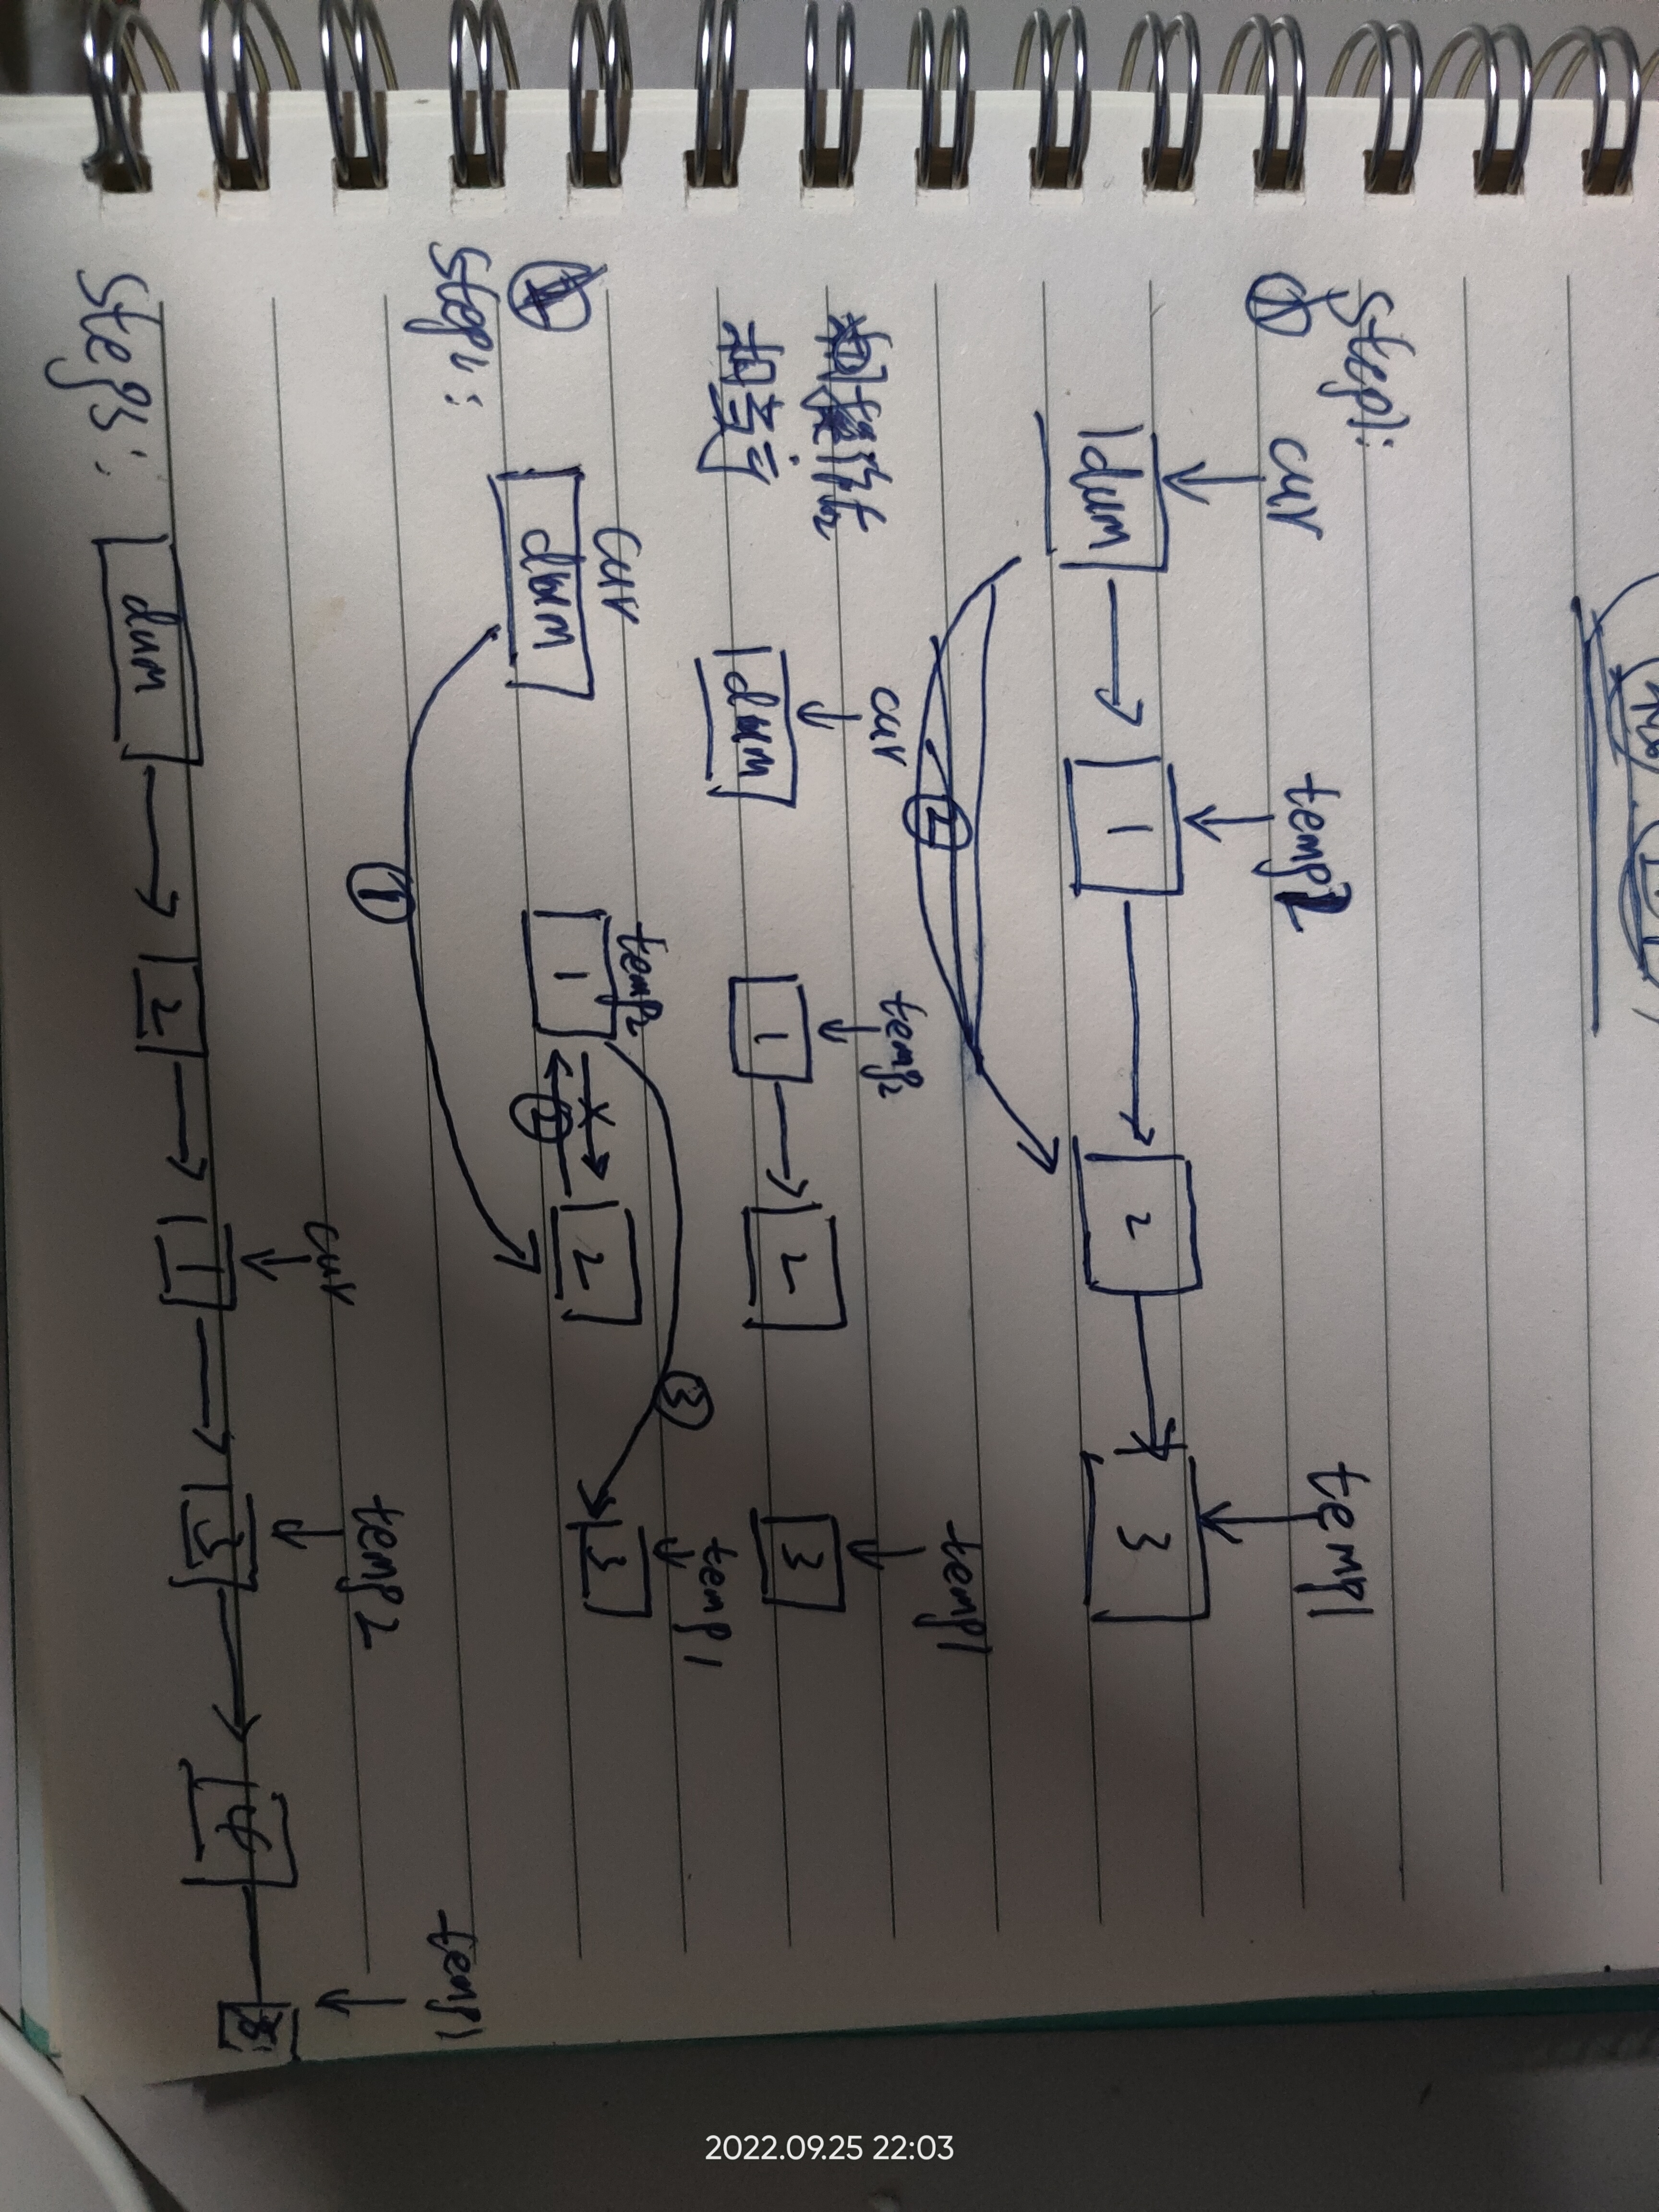 Step1:
cur temp2 temp1
①
dum 1 2 3
②
cur temp2 temp1
相当于
dum 1 2 3
cur temp2 temp1
dum 1 2 3
Step2:
②
③
①
cur temp2 temp1
Step3:
dum 2 1 3 4
2022.09.25 22:03